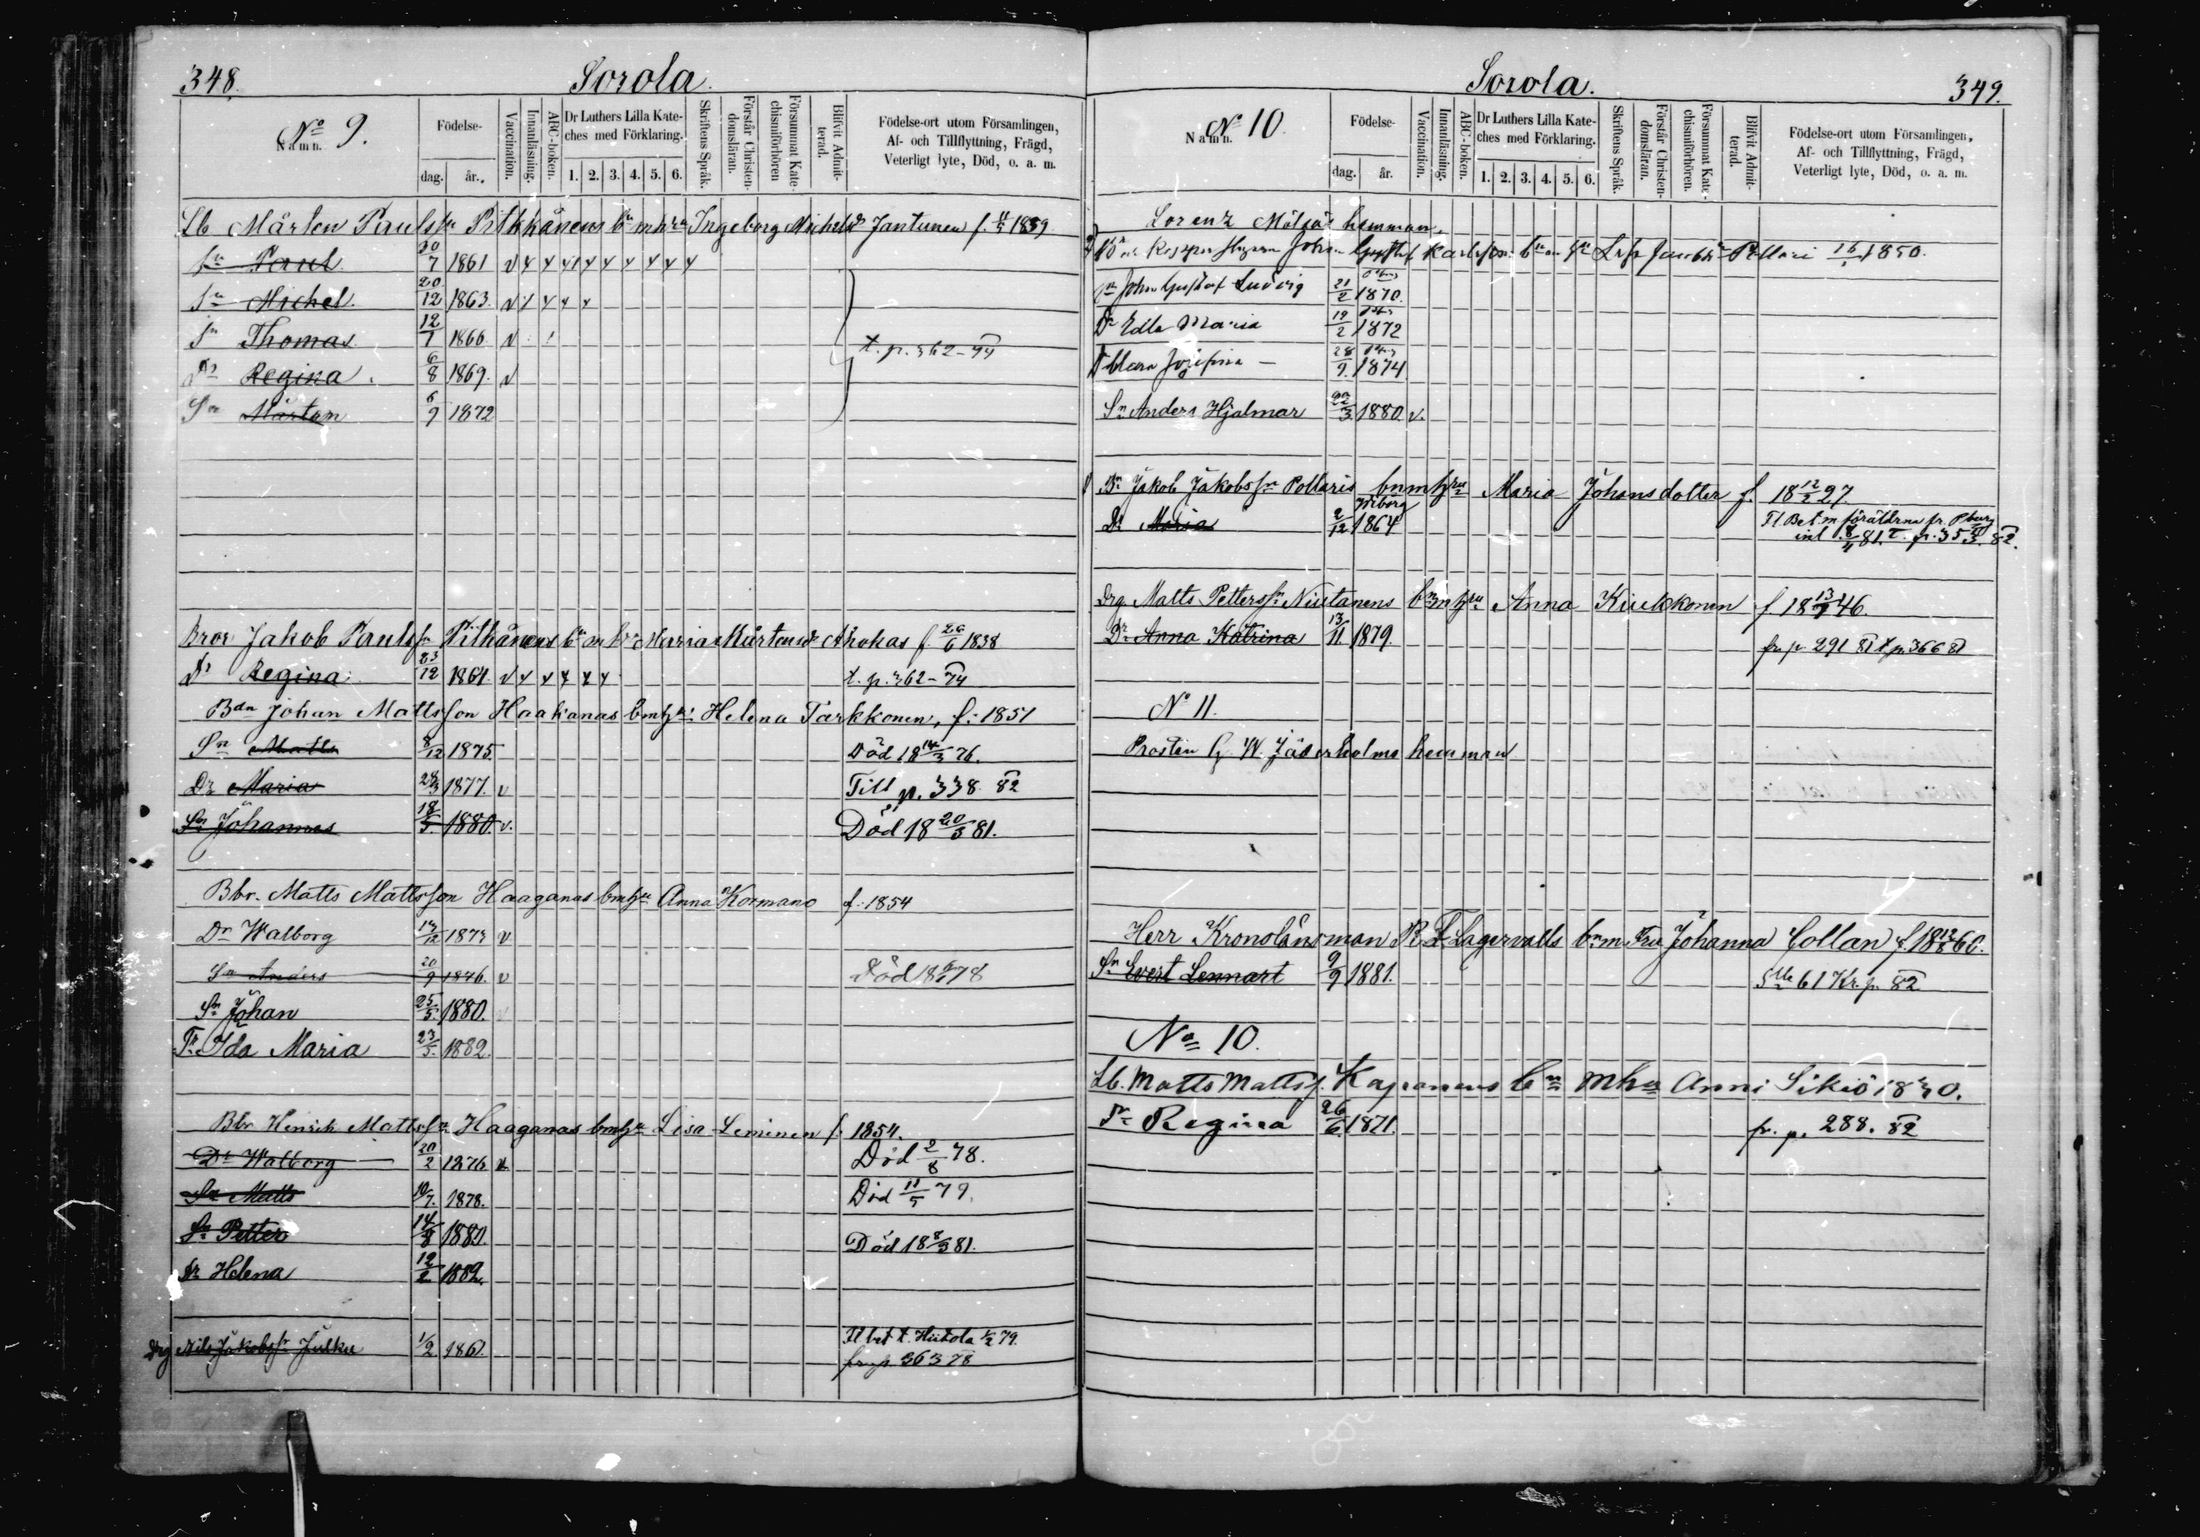 348.
Sorola.
No 9.
Namn.
Födelse-
dag.
år.
Vaccination.
Innanläsning.
ABC-boken.
Dr Luthers Lilla Kate-
ches med Förklaring.
1. 2. 3. 4. 5. 6.
Skriftens Språk.
Förstår Christen-
domsläran.
Försummat Kate-
chismiförhören
Blifvit Admit-
terad.
Födelse-ort utom Församlingen,
Af- och Tillflyttning, Frägd,
Veterligt lyte, Död, o. a. m.
Lb Mårten Paulssn Pitkkänens bn m hru Ingeborg Michelsdr Jantunen f. 1859
Sn Paul 20/7 1861 v
Sn Michel 20/12 1863. v
Sn Thomas 12/1 1866 v
t. p. 362-94
Dr Regina 6/8 1869. v
Sn Mårten 6/9 1872
Bror Jakob Paulssn Pitkänens bn m hru Maria Mårtensdr f. 26/6 1838
Dr Regina 23/12 1861 v
t. p. 362-74
Bdn Johan Mattsson Haakanas bmhru Helena Tarkkonen, f. 1851
Sn Matts 8/12 1875. Död 18 14/3 76.
Dr Maria 28/3 1877. v Till p. 338 82
Sn Johannes 18/5 1880. v. Död 18 20/5 81.
Bbr. Matts Mattsson Haaganas bmhru Anna Kormano f. 1854
Dr Walborg 1873 v
Sn Anders 20/9 1876. v Död 78
Sn Johan 25/5 1880.
Dr Ida Maria 23/5 1882.
Bbr Henrik Mattssn Haaganas bmhru Lisa Leminen f. 1854.
Dr Walborg 20/2 1876 v Död 2/8 78.
Sn Matts 10/7. 1878. Död 11/5 79.
Sn Petter 14/8 1880. Död 18 8/3 81.
Dr Helena 12/2 1882.
Drg Nils Jakobssn Julku 1/2 186. Fl bet t. Hiitola 1/2 79.
fr. p 363 78
Sorola.
349.
No 10.
Namn.
Födelse-
dag.
år.
Vaccination.
Innanläsning.
ABC-boken.
Dr Luthers Lilla Kate-
ches med Förklaring.
1. 2. 3. 4. 5. 6.
Skriftens Språk.
Förstår Christen-
domsläran.
Försummat Kate-
chismiförhören.
Blifvit Admit-
terad.
Födelse-ort utom Församlingen,
Af- och Tillflyttning, Frägd,
Veterligt lyte, Död, o. a. m.
Lorenz hemman.
Johan Gustaf Karlsson bn m hru 1850.
Sn John Gustaf Ludvig 21/2 1870.
Dr Edla Maria 19/2 1872
Dr Clara Josefina 28/9 1874
Sn Anders Hjalmar 22/3 1880 v.
Bn Jakob Jakobssn Pollaris bnmhru Maria Johansdotter f. 18 12/2 27.
Dr Maria 2/12 1864 Wiborg
Fl Bet. m. föräldrna fr. Pburg
Drg Matts Petterssn Niutanens bn m hru Anna Kiukkonen f 18 46.
Dr Anna Katrina 13/11 1879. fr. p. 291 81 t. p 366 81
No 11.
Prosten G. W. Jäderholms hemman.
Herr Kronolänsman R. F. Lagervalls bn m. Fru Johanna Collan f. 18 60.
Sn Evert Lennart 9/9 1881. 61 Kr. p. 82
No 10.
Lb. Matts Mattss. Kaponens bn mhru Anni Sikiö
Dr Regina 26/6 1871. fr. p. 288. 82